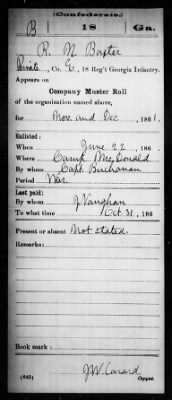 (Confederate.)
B 18 Ga.
R. N. Baxter
Private, Co. E, 18 Reg't Georgia Infantry.
Appears on
Company Muster Roll
of the organization named above,
for Nov. and Dec, 1861.
Enlisted:
When June 22, 186
Where Camp McDonald
By whom Capt. Buchanan
Period War
Last paid:
By whom J Vaughan
To what time Oct. 31, 186
Present or absent Not stated.
Remarks:
Book mark:
J.W.
(642) Copyist.